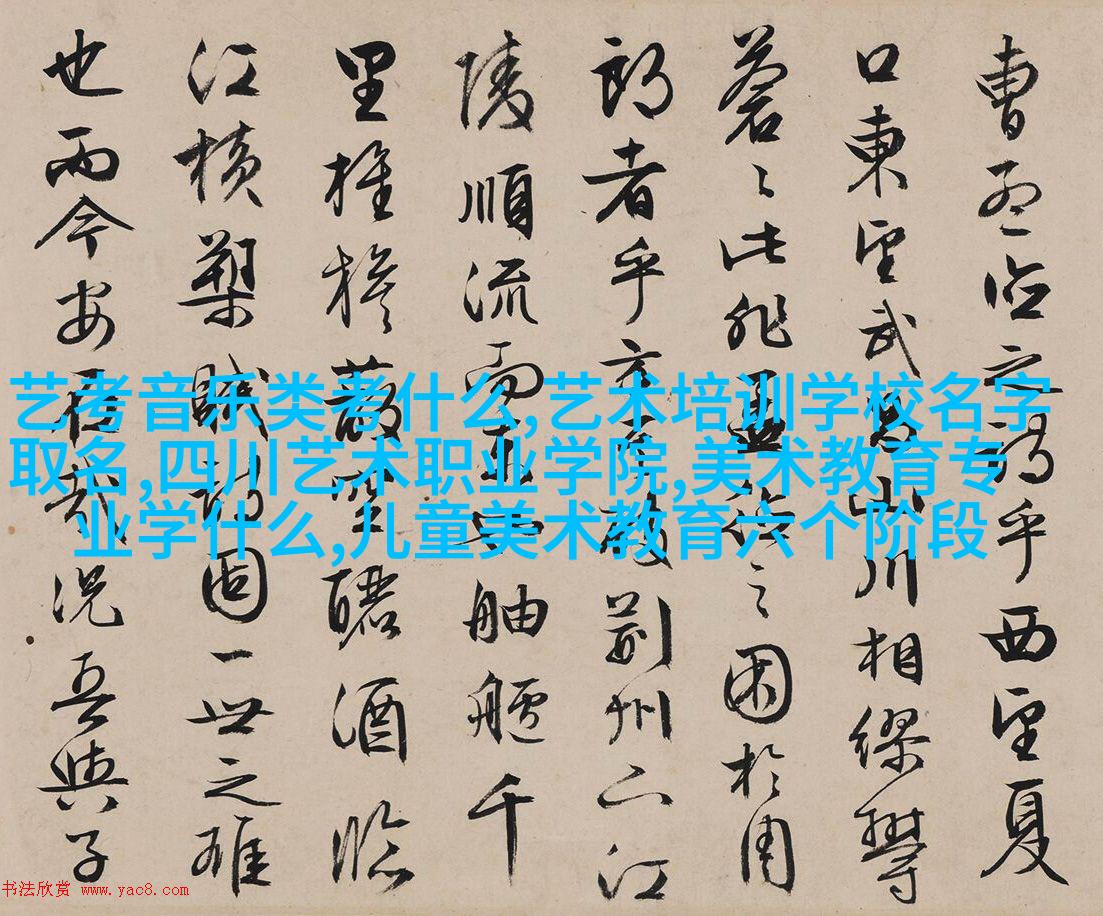 曹孟德之詩乎西望夏
口東望武昌山川相繆鬱
蒼〻此非孟德之困於周
郎者乎方其破荊州下江
陵順流而東也舳艫千
里旌旗蔽空釃酒臨
江橫槊賦詩固一世之雄
也而今安在哉況吾與子
艺考音乐类考什么,艺术培训学校名字
取名,四川艺术职业学院,美术教育专
业学什么,儿童美术教育六个阶段
书法欣赏 www.yac8.com